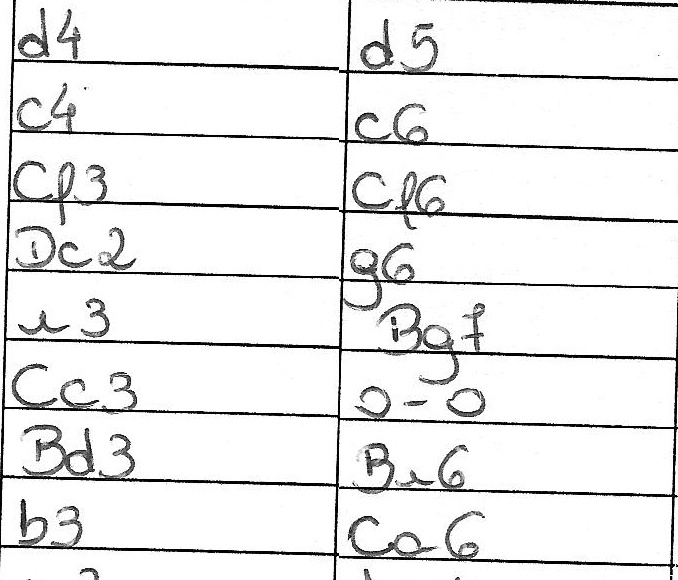 d4 d5
c4 c6
Cf3 Cf6
Dc2 g6
e3 Bg7
Cc3 0-0
Bd3 Be6
b3 Ca6